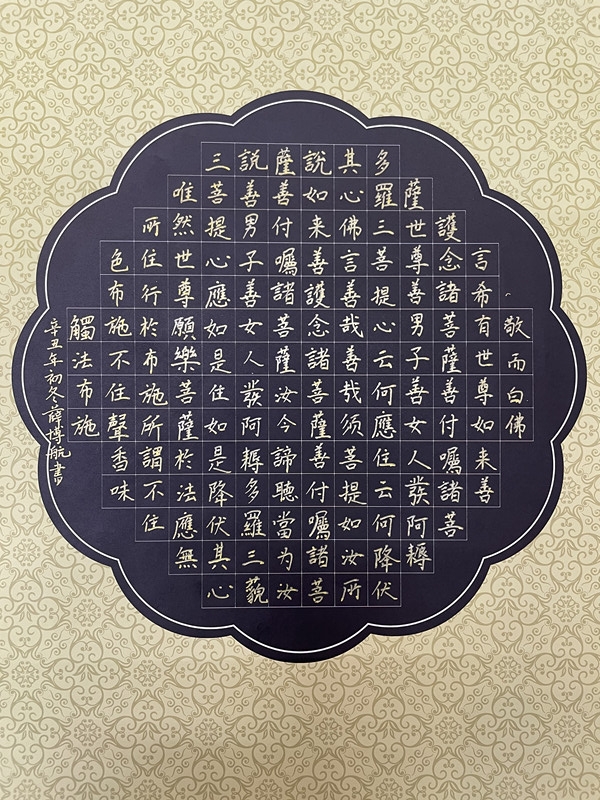 敬而白佛
言希有世尊如来善
護念諸菩薩善付囑諸菩
薩世尊善男子善女人發阿耨
多羅三菩提心云何應住云何降伏
其心佛言善哉善哉须菩提如汝所
說如来善護念諸菩薩善付囑諸菩
薩善付囑諸菩薩汝今諦聽當为汝
說善男子善女人發阿耨多羅三藐
三菩提心應如是住如是降伏其心
唯然世尊願樂菩薩於法應無
所住行於布施所謂不住
色布施不住聲香味
觸法布施
辛丑年初冬薛博航書